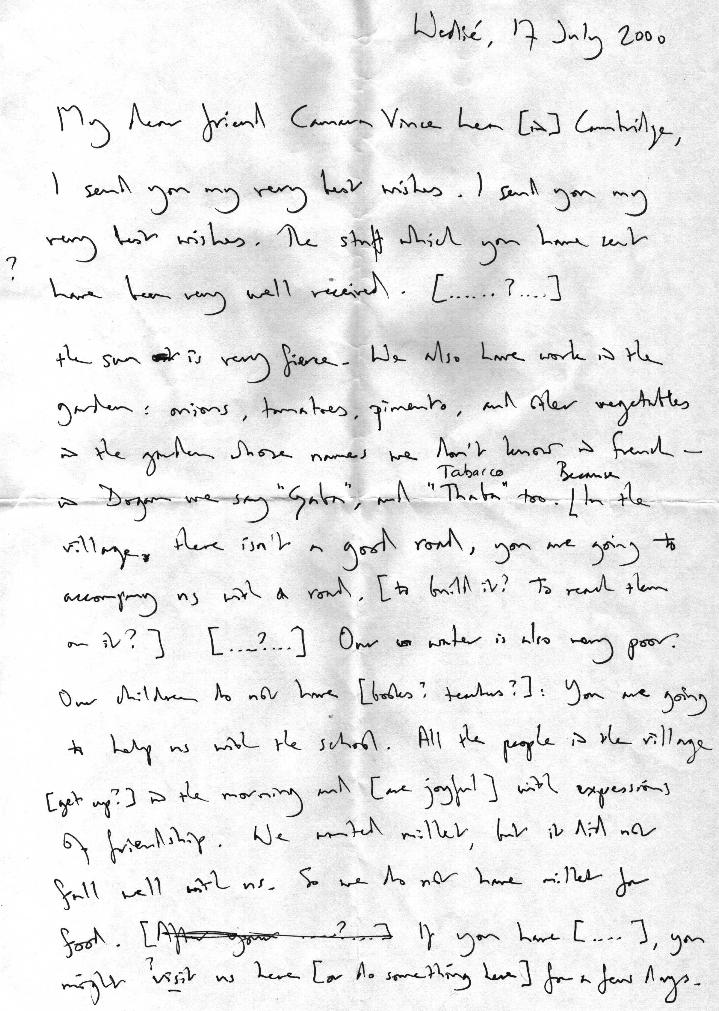 Wedié, 17 July 2000
My dear friend Camara Vince here [in] Cambridge,
I send you my very best wishes. I send you my
very best wishes. The stuff which you have sent
?
have been very well received. [......?....]
the sun is very fierce - We also have work in the
garden: onions, tomatoes, pimento, and other vegetables
in the garden whose names we don't know in french -
Tabacco Because
in Dogon we say "Gaba", and "Thaba" too. [In the
village, there isn't a good road, you are going to
accompany us with a road. [to build it? To reach them
on it?] [....?...] Our water is also very poor.
Our children do not have [books? teachers?]: You are going
to help us with the school. All the people in the village
[get up?] in the morning and [are joyful] with expressions
of friendship. We wanted millet, but it did not
full well with us. So we do not have millet for
food. [After your ....?....] If you have [....], you
might ?visit us here [or do something here] for a few days.